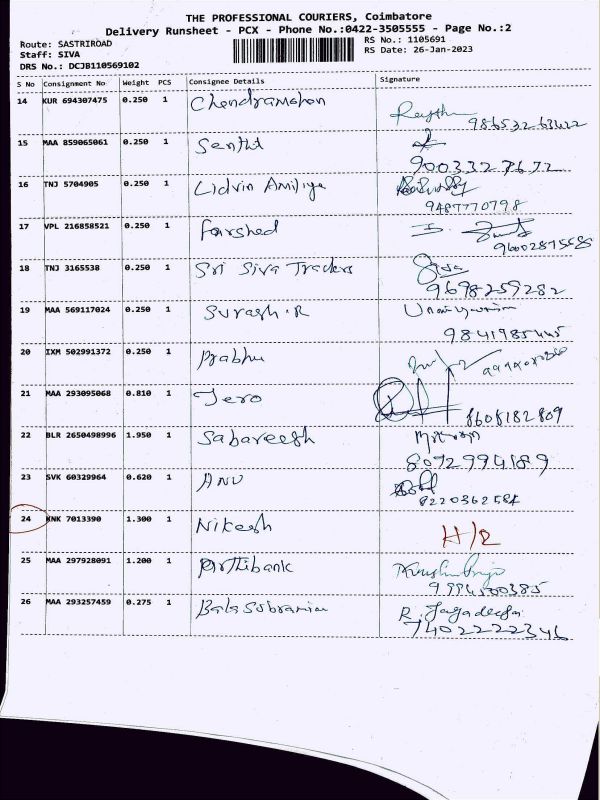 THE PROFESSIONAL COURIERS, Coimbatore
Delivery Runsheet - PCX - Phone No.:0422-3505555 - Page No.:2
Route: SASTRIROAD
RS No.: 1105691
Staff: SIVA
RS Date: 26-Jan-2023
DRS No.: DCJB110569102
S No Consignment No Weight PCS Consignee Details Signature
14 KUR 694307475 0.250 1 Chandramohan
15 MAA 859065061 0.250 1 Senthil
9003327672
16 TNJ 5704905 0.250 1 Lidvin Amiliya
9487770798
17 VPL 216858521 0.250 1 Farshed
9600287558
18 TNJ 3165538 0.250 1 Sri Siva Traders
9698259282
19 MAA 569117024 0.250 1 Suragh.R
9841985445
20 IXM 502991372 0.250 1 Prabhu
21 MAA 293095068 0.810 1 Jero
8608182809
22 BLR 2650498996 1.950 1 Sabareesh
8072994189
23 SVK 60329964 0.620 1 ANU
8220362584
24 KNK 7013390 1.300 1 Nikesh H/R
25 MAA 297928091 1.200 1 Parthibank
9994500385
26 MAA 293257459 0.275 1 Bala Subramian R. Jagadeesan
7402222346